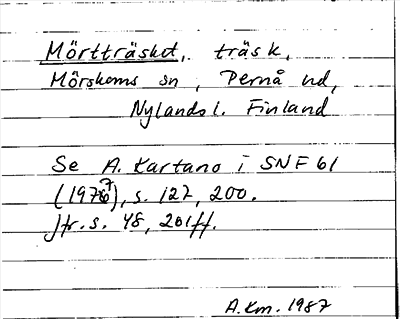 Mörtträsket, träsk,
Mörskoms sn, Pernå hd,
Nylands l. Finland
Se A. Kartano i SNF 61
(1976), s. 127, 200.
Jfr. s. 48, 201 ff.
A.Km. 1987